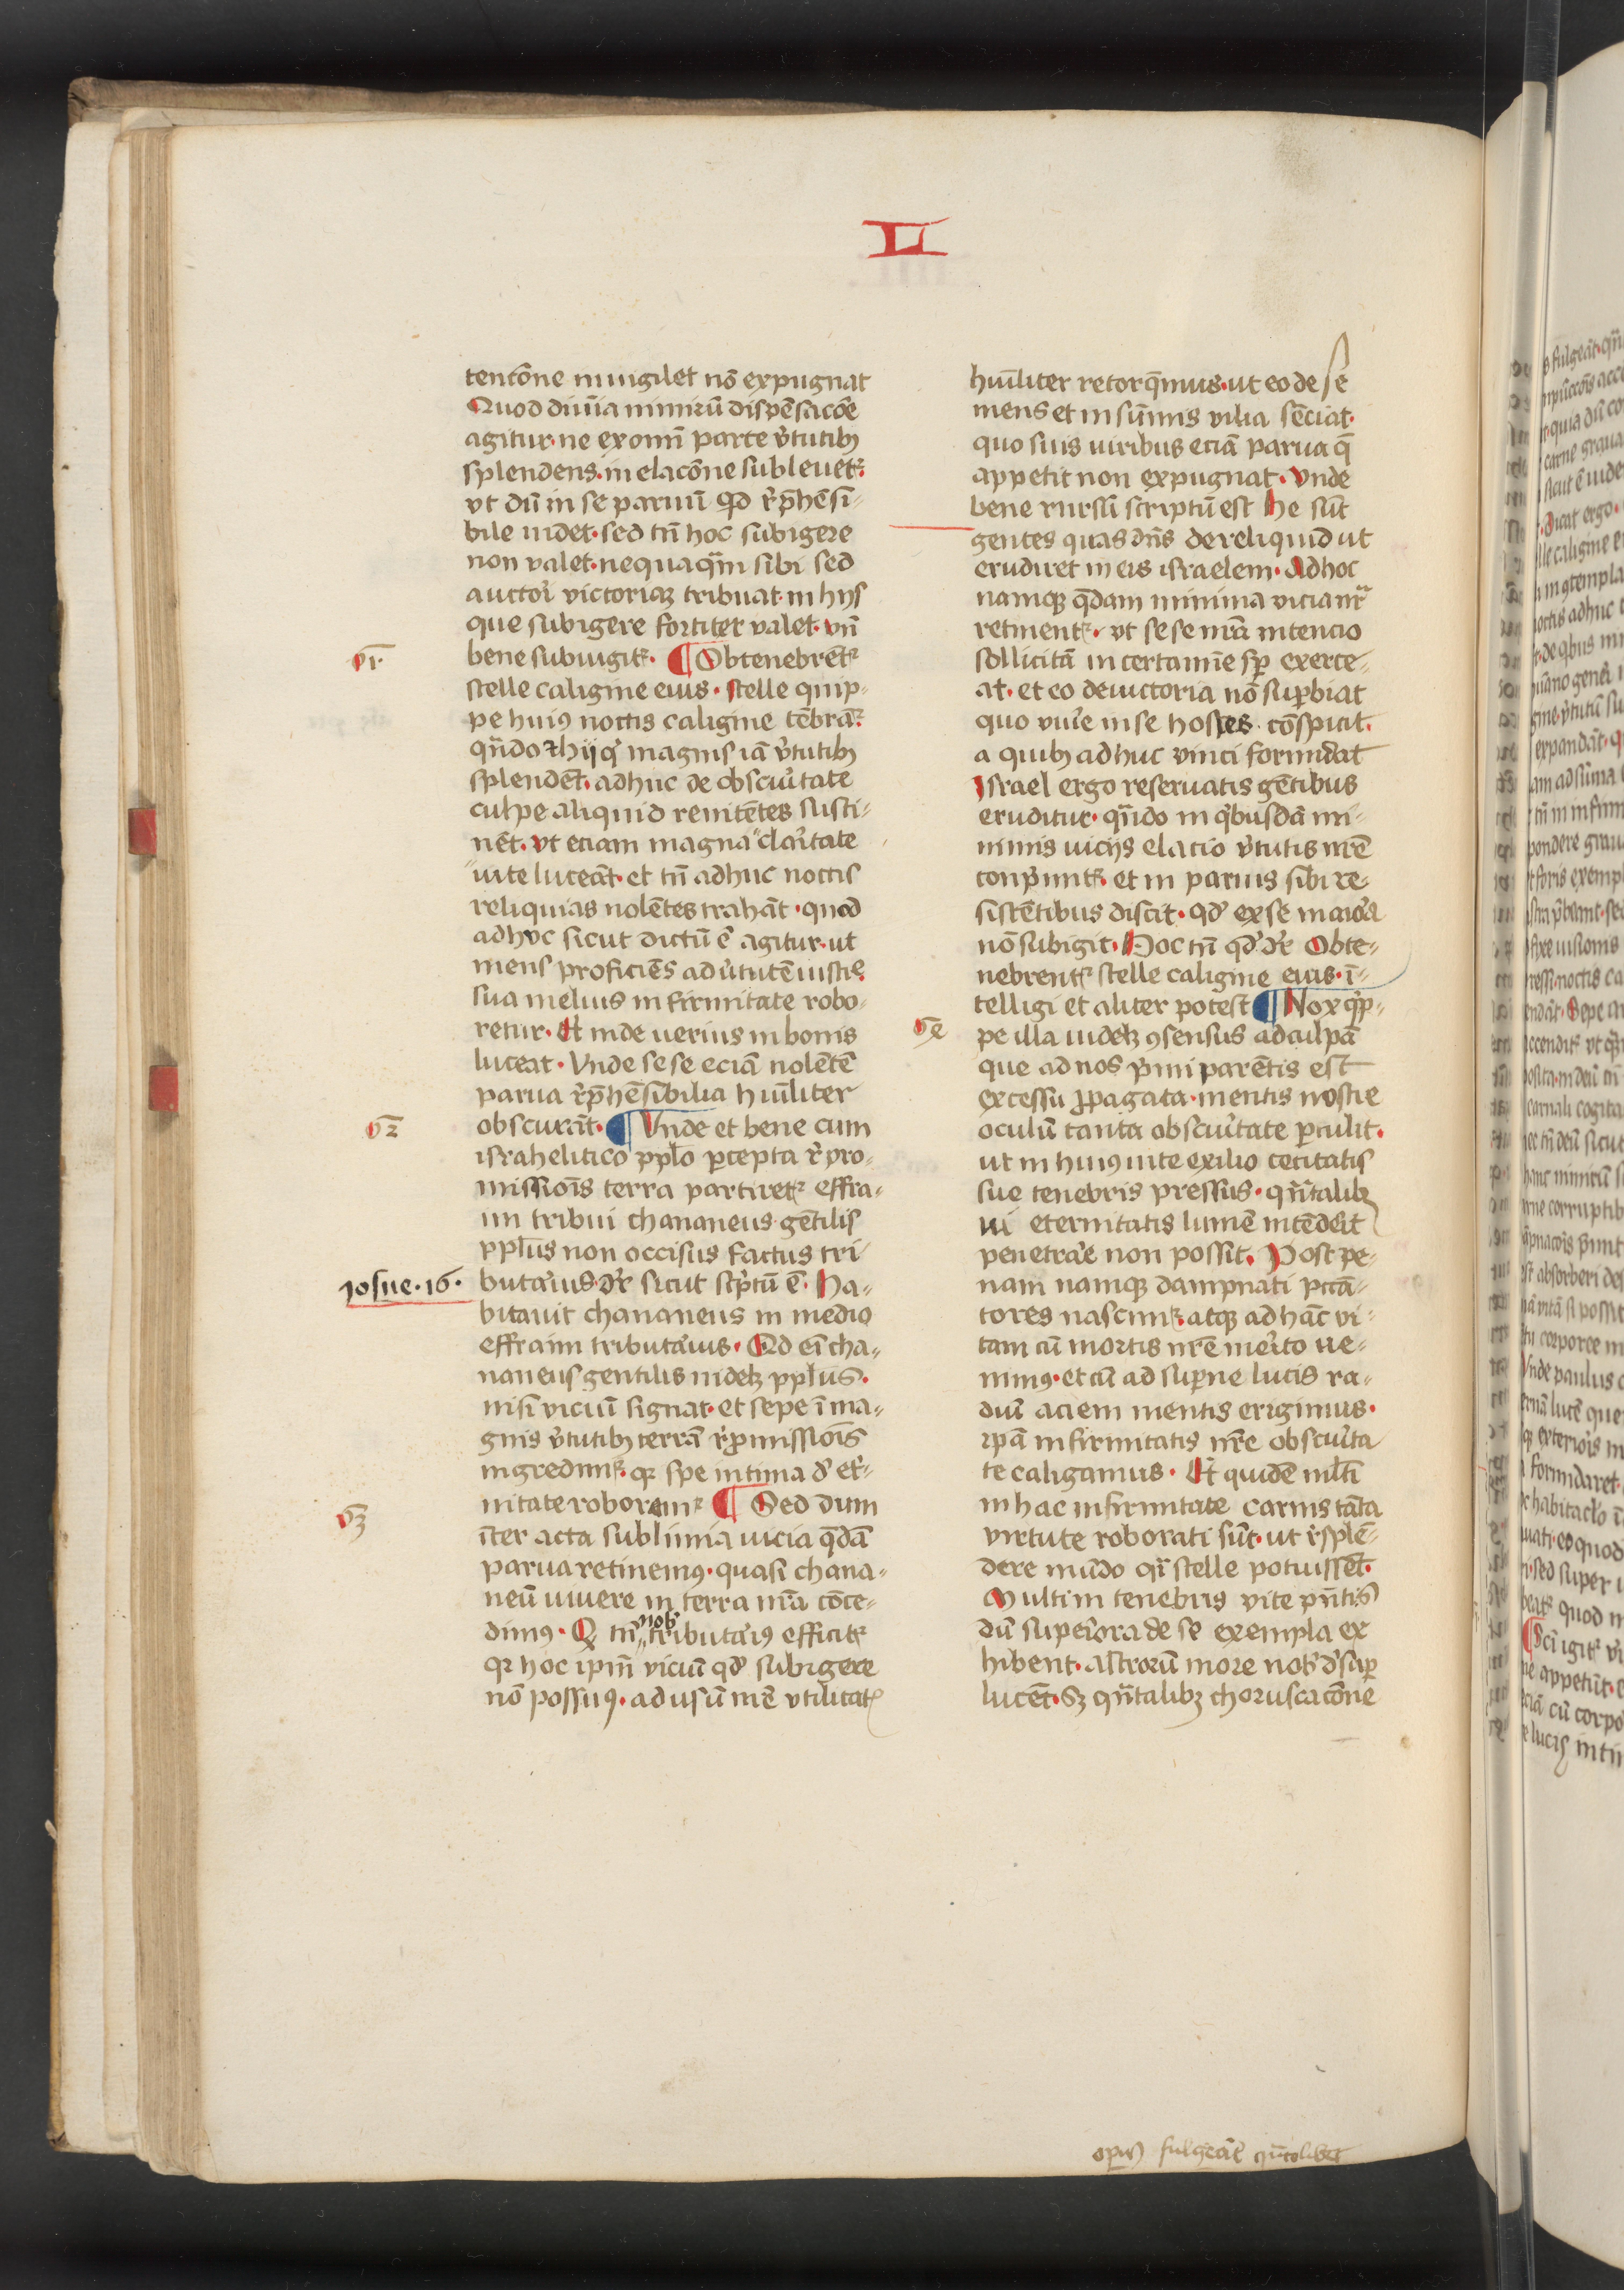 LI
tencōne inuigilet nō expugnat
Quod diuīa nimirū dispēsacōe
agitur· ne ex omī parte v̓tutibꝫ
splendens· in elacōne subleuetᷣ·
vt dū in se paruū qd r̓p̄hēsi-
bile uidet· sed tn̄ hoc subigere
non valet· nequaq̄m sibi sed
auctori victoriaꝫ tribuat· in hijs
que subigere fortiter valet· vn̄
bene subiungitᷣ· ¶ Obtenebrētᷣ
stelle caligine eius· stelle quip-
pe huiꝰ noctis caligine tēbrātᷣ
qn̄do ⁊ hij qⁱ magnis iā v̓tutibꝫ
splendēt· adhuc de obscu̓tate
culpe aliquid renitētes susti-
nēt· vt etiam magna cla̓tate
uite luceāt· et tn̄ adhuc noctis
reliquias nolētes trahāt· quod
adhuc sicut dictū ē agitur· ut
mens proficiēs ad v̓tutē iusticie
sua melius infirmitate robo-
retur· Et inde uerius in bonis
luceat· Vnde sese eciā nolētē
parua r̓p̄hēsibilia hūiliter
obscurāt· ¶ Vnde et bene cum
israhelitico pplo p̱cepta r̓pro-
missiōis terra partiretᷣ effra-
im tribui chananeus gētilis
ppl̄us non occisus factus tri
buta̓ius dr̄ sicut sc̓ptū ē· Ha-
bitauit chananeus in medio
effraim tributa̓ius· Qd eī cha-
naneus gentilis uidelꝫ ppl̄us·
nisi viciū signat· et sepe ī ma-
gnis v̓tutibꝫ terrā r̓p̱missiōis
ingredimᷣ· qr spe intima d̓ et̓-
nitate roboramᷣ ¶ Sed dum
īter acta sublimia uicia q̄dā
parua retinemꝰ· quasi chana-
neū uiuere in terra nr̄a cōce-
dimꝰ· Q̱ tn̄ nob̓ tributa̓iꝰ efficitᷣ
qr hoc ipm̄ viciū qd̓ subigere
nō possumꝰ· ad usū nr̄e vtilitatꝭ
vī
v2
Josue· 16·
v3
hūiliter retorq̄mus· ut eo de se
mens et in sūmis vilia sēciat·
quo suis uiribus eciā parua q̄
appetit non expugnat· Vnde
bene rursū scriptū est He sūt
gentes quas dn̄s dereliquid ut
erudiret in eis israelem· Ad hoc
namqꝫ q̄dam minima vicia nr̄a
retinentᷣ· vt sese nr̄a intencio
sollicitā in certamīe sp̱ exerce-
at· et eo de uictoria nō sup̱biat
quo viue̓ in se hostes cōspicit·
a quibꝫ adhuc vinci formidat
Israel ergo reseruatis gētibus
eruditur· qn̄do in qⁱbusdā mi-
nimis uicijs elacio v̓tutis nr̄e
conp̓mitᷣ· et in paruis sibi re-
sistētibus discit· qd̓ ex se maiora
nō subigit· Hoc tn̄ qd̓ dr̄ Obte-
nebrentᷣ stelle caligine eius· ī-
telligi et aliter potest ¶ Nox qⁱp-
pe illa uidelꝫ ꝯsensus ad culpā
que ad nos p̓mi parētis est
excessu p̱pagata· mentis nostre
oculū tanta obscu̓tate p̱culit·
ut in huiꝰ uite exilio cecitatis
sue tenebris pressus· qn̄talibꝫ
ui eternitatis lumē intēde̓it
penetra̓e non possit· Post pe-
nam namqꝫ dampnati pccā-
tores nascimᷣ· atqꝫ ad hāc vi-
tam cū mortis nr̄e me̓ito ve-
nimꝰ· et cū ad sup̱ne lucis ra-
diū aciem mentis erigimus·
ip̱ā infirmitatis nr̄e obscu̓ta
te caligamus· Et quidē ml̄ti
in hac infirmitate carnis tāta
virtute roborati sūt· ut r̓splē-
dere mūdo qⁱ stelle potuissēt·
Multi in tenebris vite pn̄tis
dū superiora de se exempla ex
hibent· astrorū more nob̓ d̓sup̱
lucēt· Sꝫ qn̄talibꝫ choruscacōne
ve
opis fulgeāt qn̄tolibet